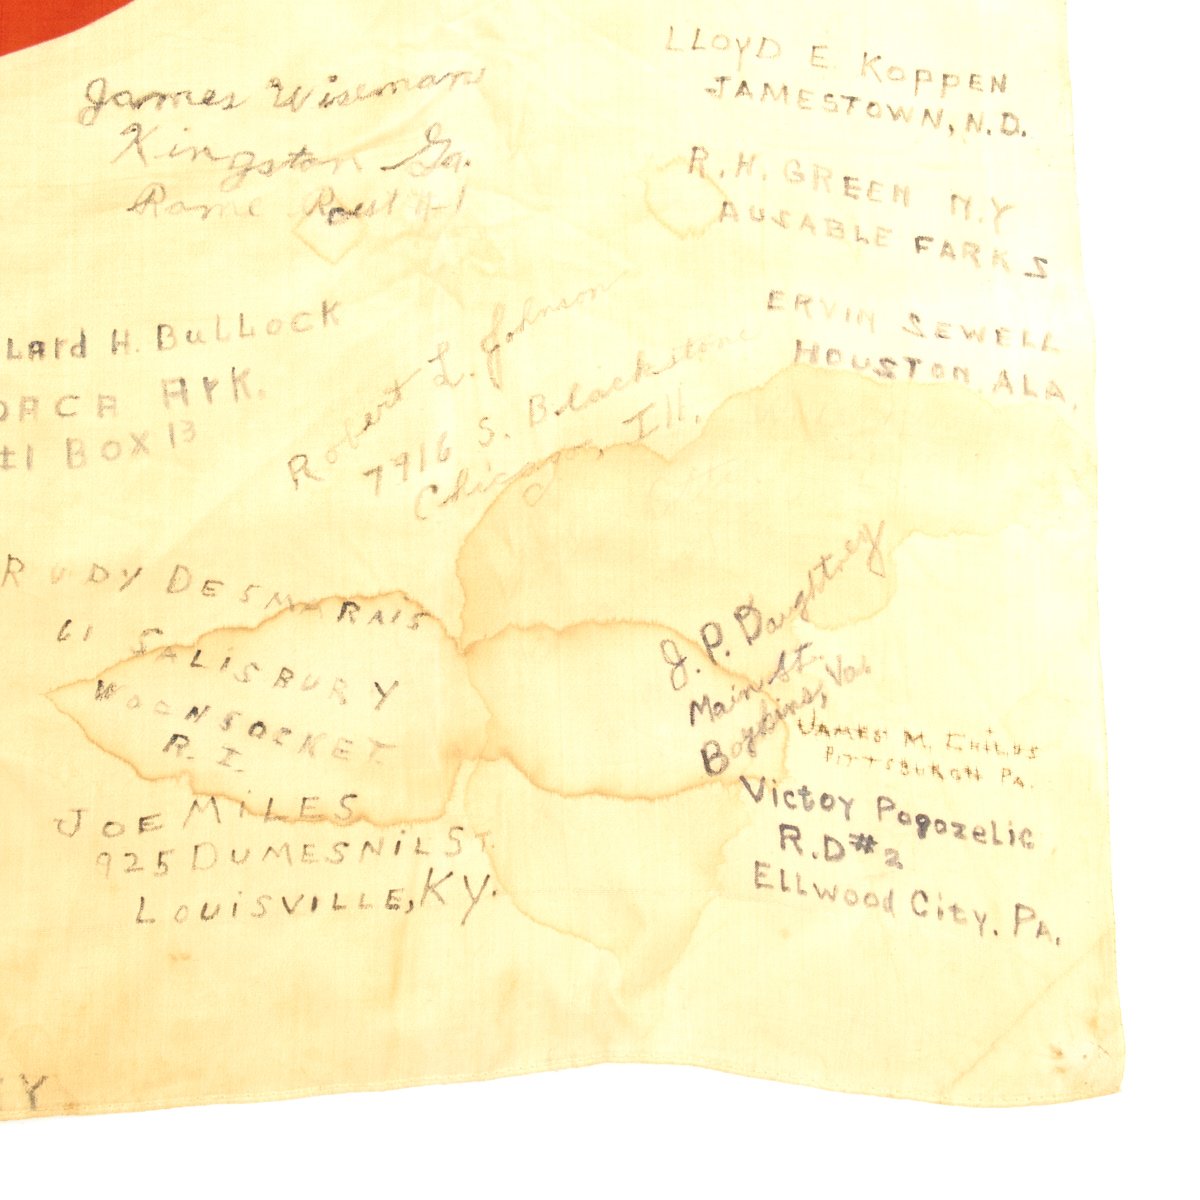 James Wiseman
Kingston Ga.
Rome
LLOYD E KOPPEN
JAMESTOWN, N.D.
R.H. GREEN N.Y
AUSABLE FARKS
lard H. BuLLocK
Ark.
BOX 13
Robert L. Johnson
7916 S. Blackstone
Chicago, Ill.
ERVIN SEWELL
HOUSTON, ALA.
RUDY DESMARAIS
61 SALISBURY
WOONSOCKET
R. I.
J. P. Daughtrey
Main St.
Boykins, Va.
JAMES M. CHILDS
PITTSBURGH PA.
JOE MiLES
925 DUMESNiL ST.
LOUiSVILLE, KY.
Victoy Pogozelic
R.D #2
Ellwood City, PA.
Y